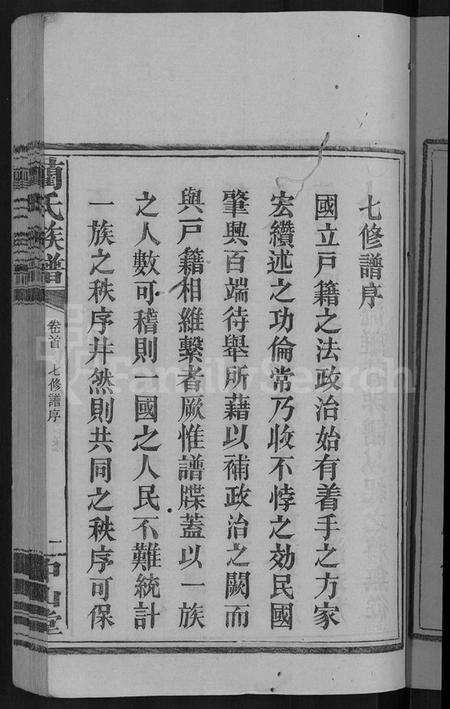 七修譜序
國立戶籍之法政治始有着手之方家
宏纘述之功倫常乃收不悖之効民國
肇興百端待舉所藉以補政治之闕而
與戶籍相維繫者厥惟譜牒蓋以一族
之人數可稽則國之人民不難統計
一族之秩序井然則共同之秩序可保
氏族譜
卷首 七修譜序
FamilySearch